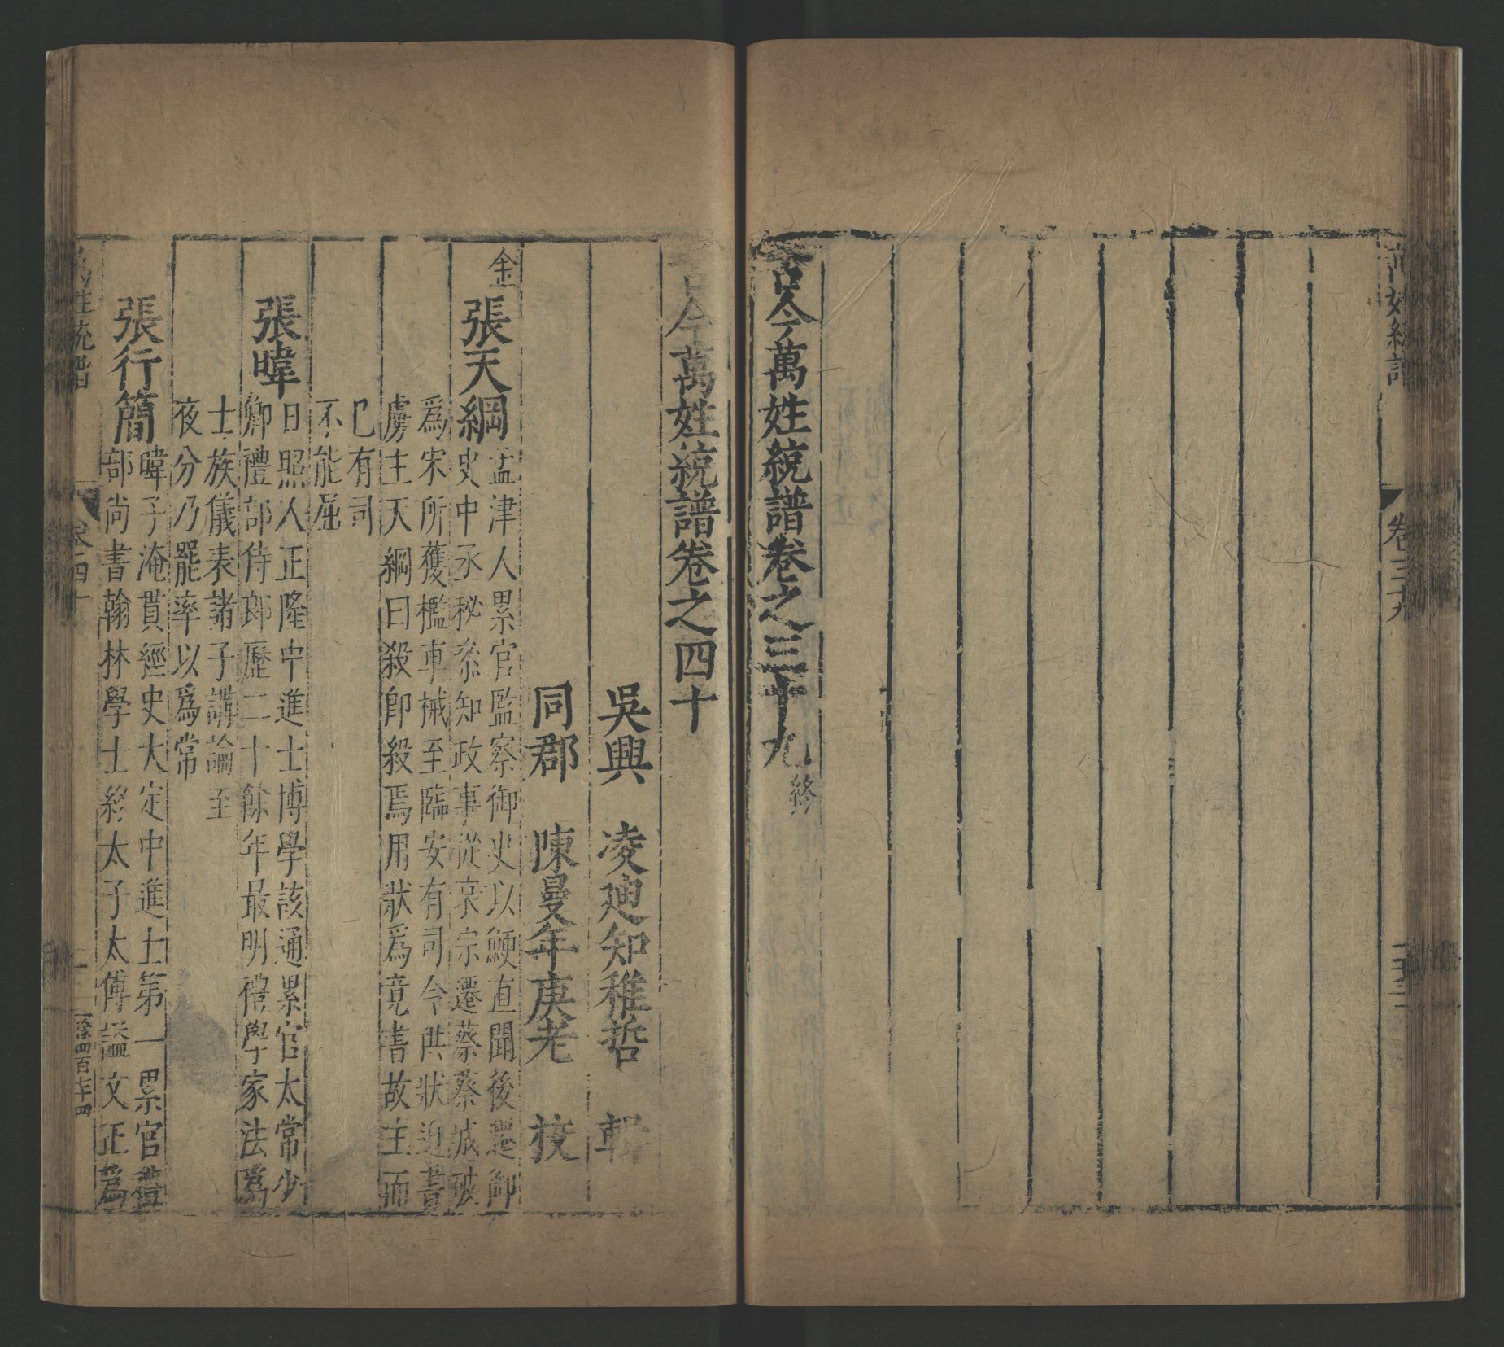 古今萬姓統譜卷之三十九終
卷三十九
古今萬姓統譜卷之四十
吳興 凌廸知稚哲 輯
同郡 陳曼年庚老 校
金
張天綱
孟津人累官監察御史以鯁直聞後遷御
史中丞秘叅知政事從哀宗遷蔡蔡城破
爲宋所獲檻車械至臨安有司令供狀迫書
虜主天綱曰殺即殺焉用狀爲竟書故主而
已有司
不能屈
張暐
日照人正隆中進士博學該通累官太常少
卿禮部侍郎歷二十餘年最明禮學家法爲
士族儀表諸子講論至
夜分乃罷率以爲常
張行簡
暐子淹貫經史大定中進士第一累官禮
部尚書翰林學士終太子太傅謚文正爲